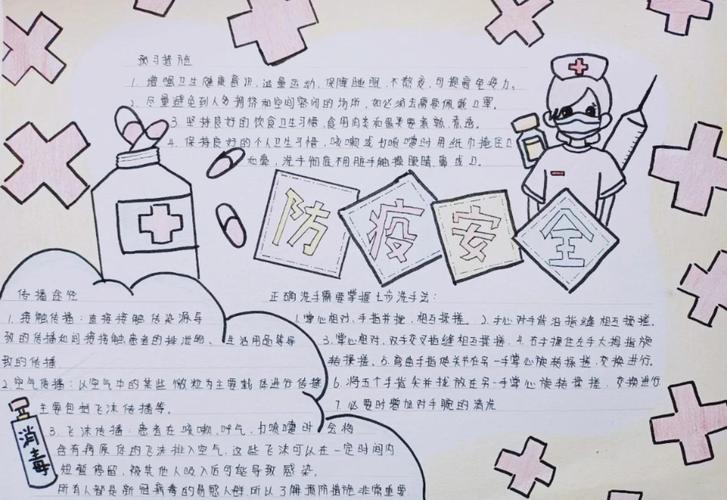 预习措施
1. 增强卫生健康意识,适量运动,保障睡眠,不熬夜,可提高免疫力。
2. 尽量避免到人多拥挤和空间密闭的场所,如必须去需要佩戴口罩。
3. 坚持良好的饮食卫生习惯,食用肉类和蛋类要煮熟、煮透。
4. 保持良好的个人卫生习惯,咳嗽或打喷嚏时用纸巾掩住口
鼻,洗手彻底不用脏手触摸眼睛鼻或口。
防疫安全
传播途径
1. 接触传播:直接接触传染源导
致的传播如间接接触患者的排泄物、生活用品等导
致的传播
2. 空气传播:以空气中的某些微粒为主要载体进行传播
主要包括飞沫传播等。
3. 飞沫传播:患者在咳嗽,呼气,打喷嚏时会将
含有病原体的飞沫排入空气,这些飞沫可以在一定时间内
短暂停留,被其他人吸入后可能导致感染。
所有人都是新冠病毒的易感人群所以了解预防措施非常重要
消毒
正确洗手需要掌握七步洗手法:
1. 掌心相对,手指并拢,相互揉搓。2. 手心对手背沿指缝相互揉搓。
3. 掌心相对,双手交叉指缝相互揉搓,4. 右手握住左手大拇指旋
转揉搓。5. 弯曲手指使关节在另一手掌心旋转揉搓,交换进行。
6. 将五个手指尖并拢放在另一手掌心旋转揉搓,交换进行
7. 必要时增加对手腕的清洗